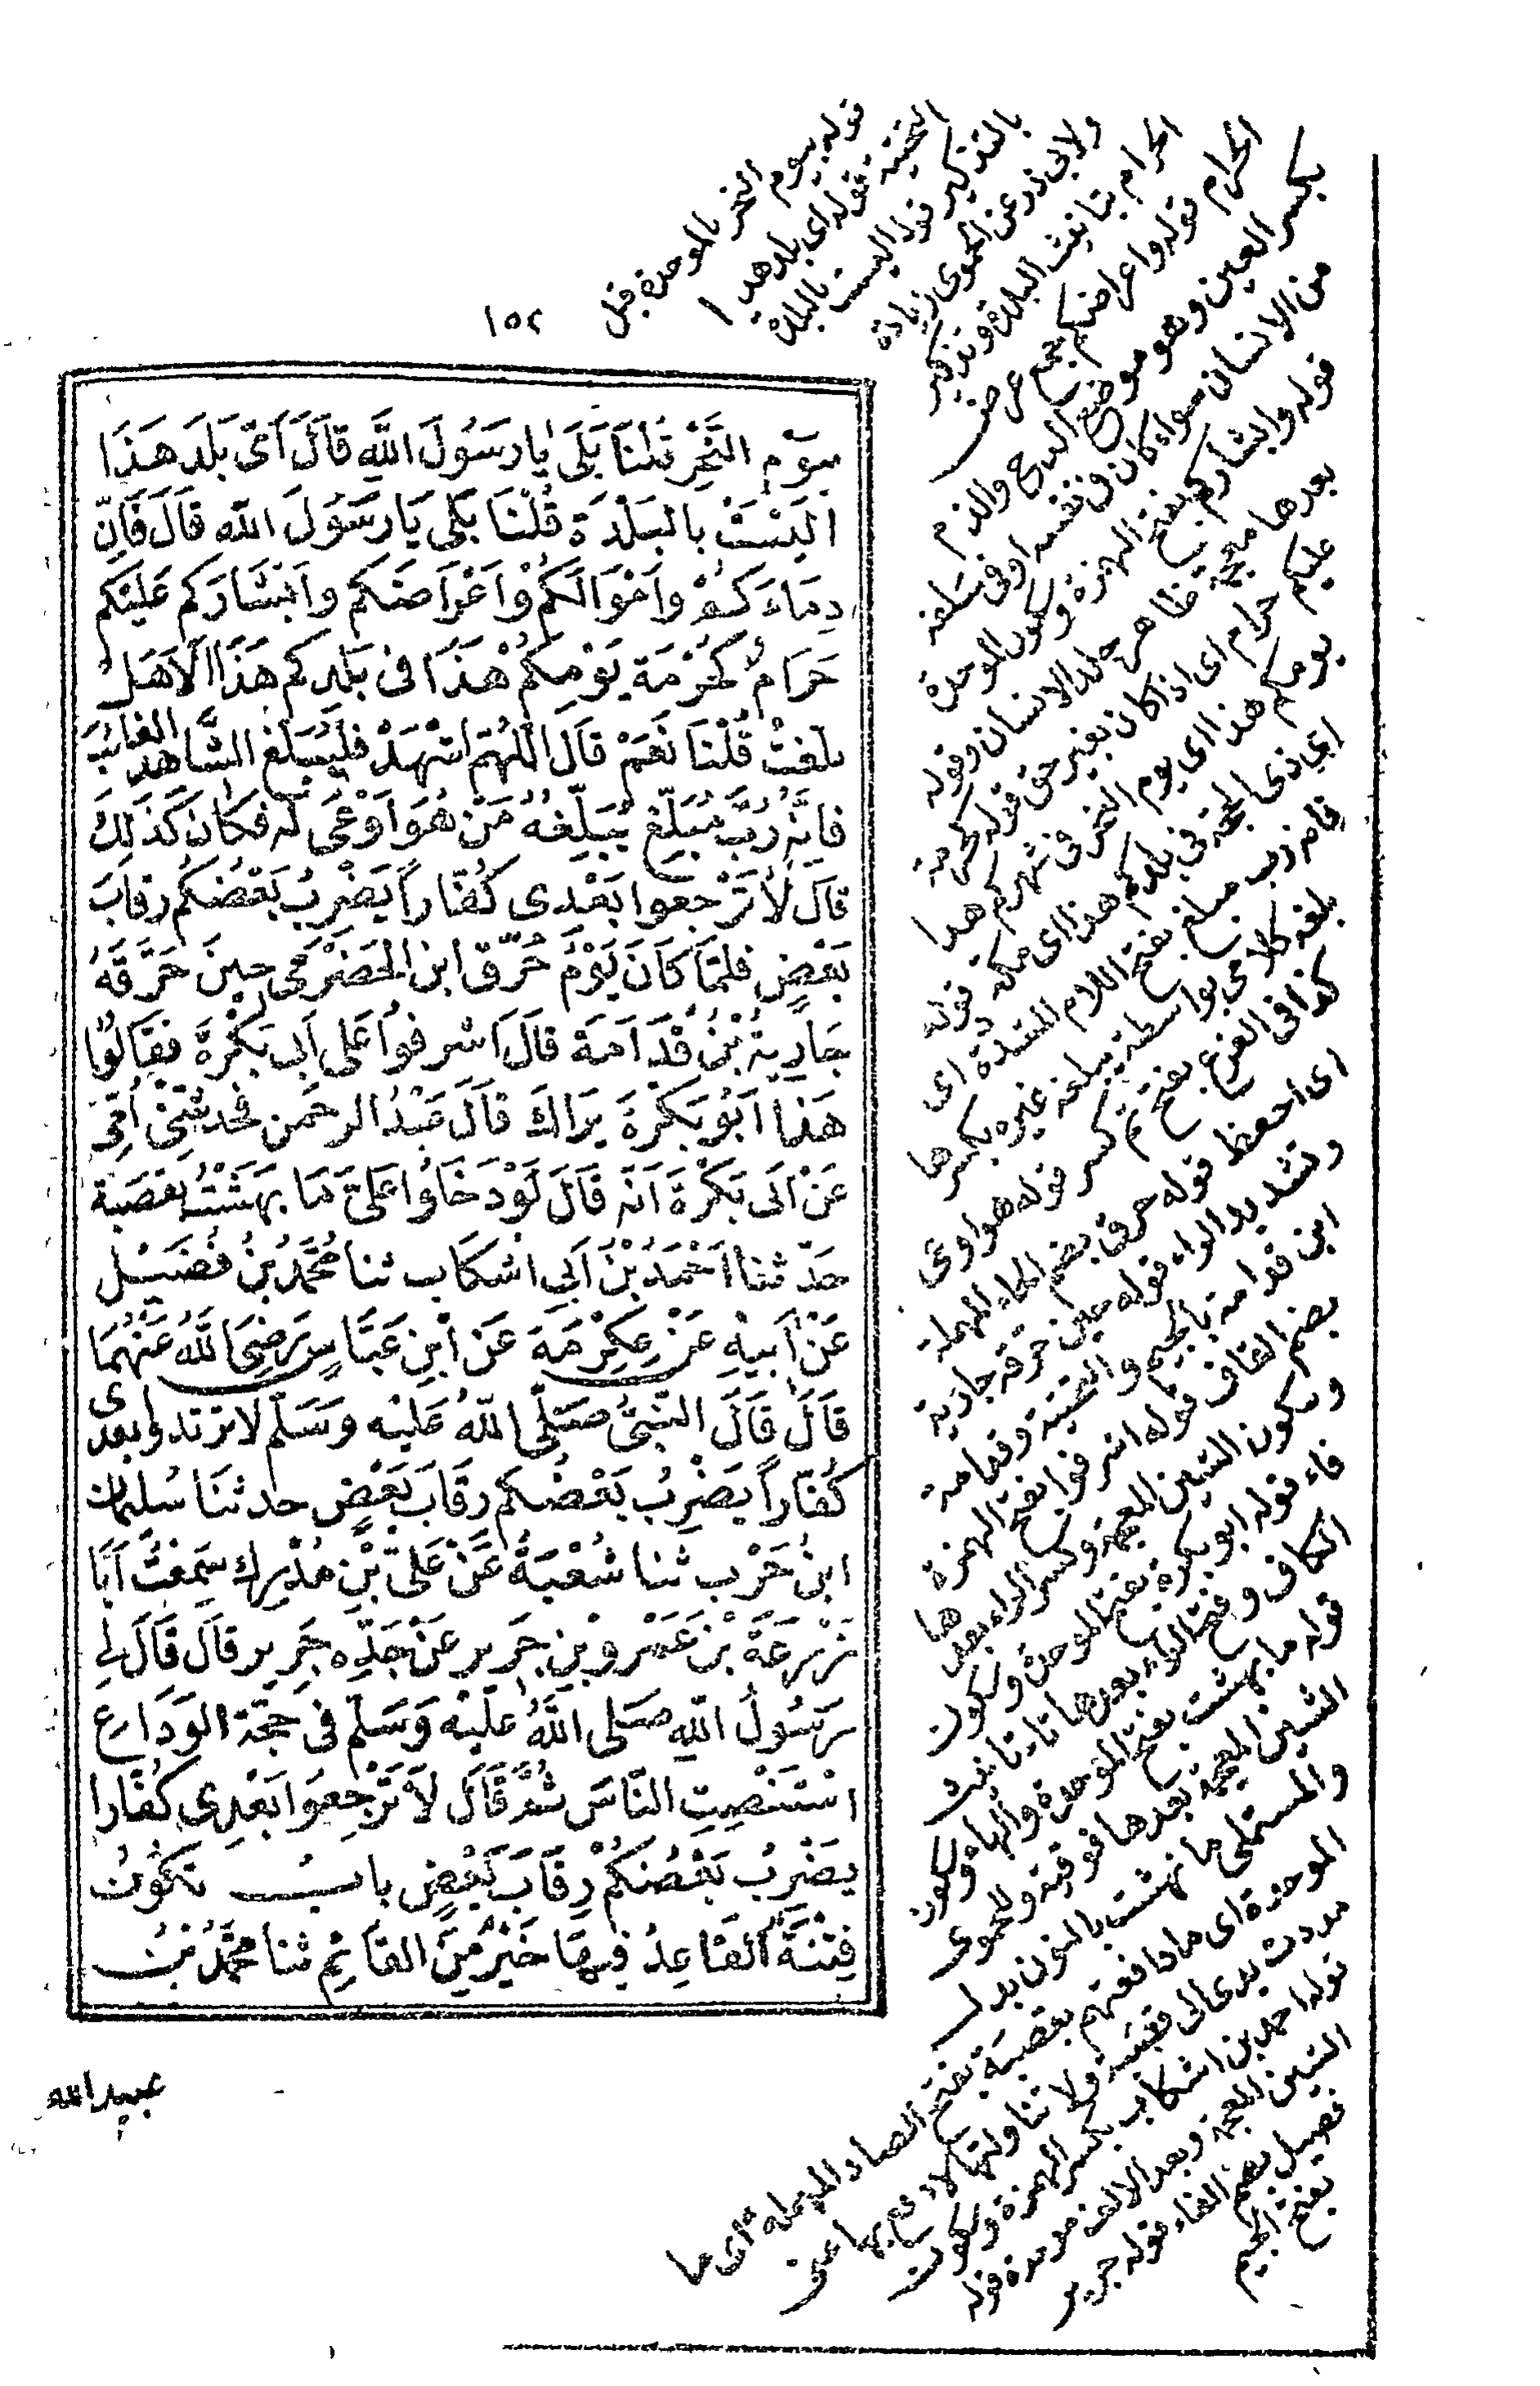 ١٥٢
بيَوْمِ النَّحْرِ قُلْنَا بَلَى يَا رَسُولَ اللَّهِ قَالَ اَىُّ بَلَدٍ هَذَا
اَلَيْسَتْ بِالْبَلْدَةِ قُلْنَا بَلَى يَا رَسُولَ اللَّهِ قَالَ فَاِنَّ
دِمَاءَكُمْ وَاَمْوَالَكُمْ وَاَعْرَاضَكُمْ وَاَبْشَارَكُمْ عَلَيْكُمْ
حَرَامٌ كَحُرْمَةِ يَوْمِكُمْ هَذَا فى بَلَدِكُمْ هَذَا اَلَا هَلْ
بلغتُ قُلْنَا نَعَمْ قَالَ اللَّهُمَّ اشْهَدْ فَلْيُبَلِّغ الشَّاهِدُ الغائبَ
فَاِنَّهُ رُبَّ مُبَلِّغٍ يُبَلِّغُهُ مَنْ هُوَ اَوْعَى لَهُ فكَانَ كَذَلِكَ
قَالَ لاَ تَرْجِعوا بَعْدى كُفَّاراً يَضْرِبُ بَعْضُكُمْ رقابَ
بَعْضٍ فلمَّا كَانَ يَوْمُ حُرِّقَ ابن الحَضْرَمى حِينَ حَرَّقَهُ
جَارِيَةُ بْنُ قُدَامَةَ قَالَ اَشرِفُوا عَلى اَبى بَكْرَةَ فقَالُوا
هَذَا اَبُو بَكْرَةَ يَرَاكَ قَالَ عَبْدُ الرحمن فحَدثتنى اُمّى
عَنْ اَبى بَكْرَةَ اَنَّهُ قَالَ لَوْ دَخَلُوا عَلَىَّ مَا بَهَشْتُ بقَصَبَةٍ
حَدّثنا اَحْمَدُ بْنُ اَبِى اشكَاب ثنا مُحَمَّدُ بْنُ فُضَيْل
عَنْ اَبيهِ عَنْ عِكْرِمَةَ عَن ابنِ عَبَّاسٍ رَضِىَ اللهُ عَنْهُمَا
قَالَ قَالَ النَّبىُّ صَلَّى اللّٰهُ عَلَيْه وَسَلَّم لا ترتدوا بعدى
كُفَّاراً يَضْرِبُ بَعْضُكم رقَابَ بَعْضٍ حدثنَا سُليمان
ابنُ حَرْب ثنا شُعْبَةُ عَنْ عَلىّ بْنِ مُدْرِك سَمِعْتُ اَبَا
زُرْعَةَ بْنَ عَمْرو بْنِ جَرير عَنْ جَدِّه جَرِير قَالَ قَالَ لى
رَسُولُ اللّهِ صَلى اللهُ عَلَيْه وَسَلَّم فى حجّة الوَدَاع
اسْتَنْصِتِ النَّاسَ ثُمَّ قَالَ لاَ تَرْجِعوا بَعْدِى كُفَّارا
يَضْرِبُ بَعْضُكُمْ رِقَابَ بَعْضٍ باب تَكُونُ
فِتْنَةٌ اَلْقَاعِدُ فِيهَا خَيْرٌ مِنَ القَائِم ثنا محَمَّدُ بْنُ
عبيد الله
قوله بيوم النحر بالموحدة قبل
التحتية قوله اى بلد هذا
بالتذكير قوله اليست بالبلدة
ولابى ذر عن الحموى زيادة
الحرام بتانيث البلدة وتذكير
الحرام قوله واعراضكم جمع عرض
بكسر العين وهو موضع المدح والذم
من الانسان سواء كان فى نفسه او فى سلفه
قوله وابشاركم بفتح الهمزة وسكون الموحدة
بعدها معجمة ظاهر جلد الانسان وقوله
عليكم حرام اى اذا كان بغير حق قوله كحرمة
يومكم هذا اى يوم النحر فى شهركم هذا
اى ذى الحجة فى بلدكم هذا اى مكة قوله
فانه رب مبلغ بفتح اللام المشددة اى
بلغه كلامى بواسطة يبلغه غيره بكسرها
كذا فى الفرع بفتح ثم كسر قوله هو اوعى
اى احفظ قوله حرق بضم الحاء المهملة
وتشديد الراء قوله حين حرقه جارية
ابن قدامة بالجيم والتحتية وقدامة
بضم القاف قوله اشرفوا بفتح الهمزة
وسكون الشين المعجمة وكسر الراء بعدها
فاء قوله ابو بكرة بفتح الموحدة وسكون
الكاف وفتح الراء بعدها تاء تانيث
قوله ما بهشت بفتح الموحدة والهاء وسكون
الشين المعجمة بعدها فوقية وللحموى
والمستملى ما بهشت بالنون بدل
الموحدة اى ما دافعتهم بقصبة بفتح الصاد المهملة اى ما
مددت يدى الى قصبة ولا تناولتها لادفع بها عنى
قوله احمد بن اشكاب بكسر الهمزة وسكون
الشين المعجمة وبعد الالف موحدة قوله
فضيل بضم الفاء قوله جرير
بفتح الجيم